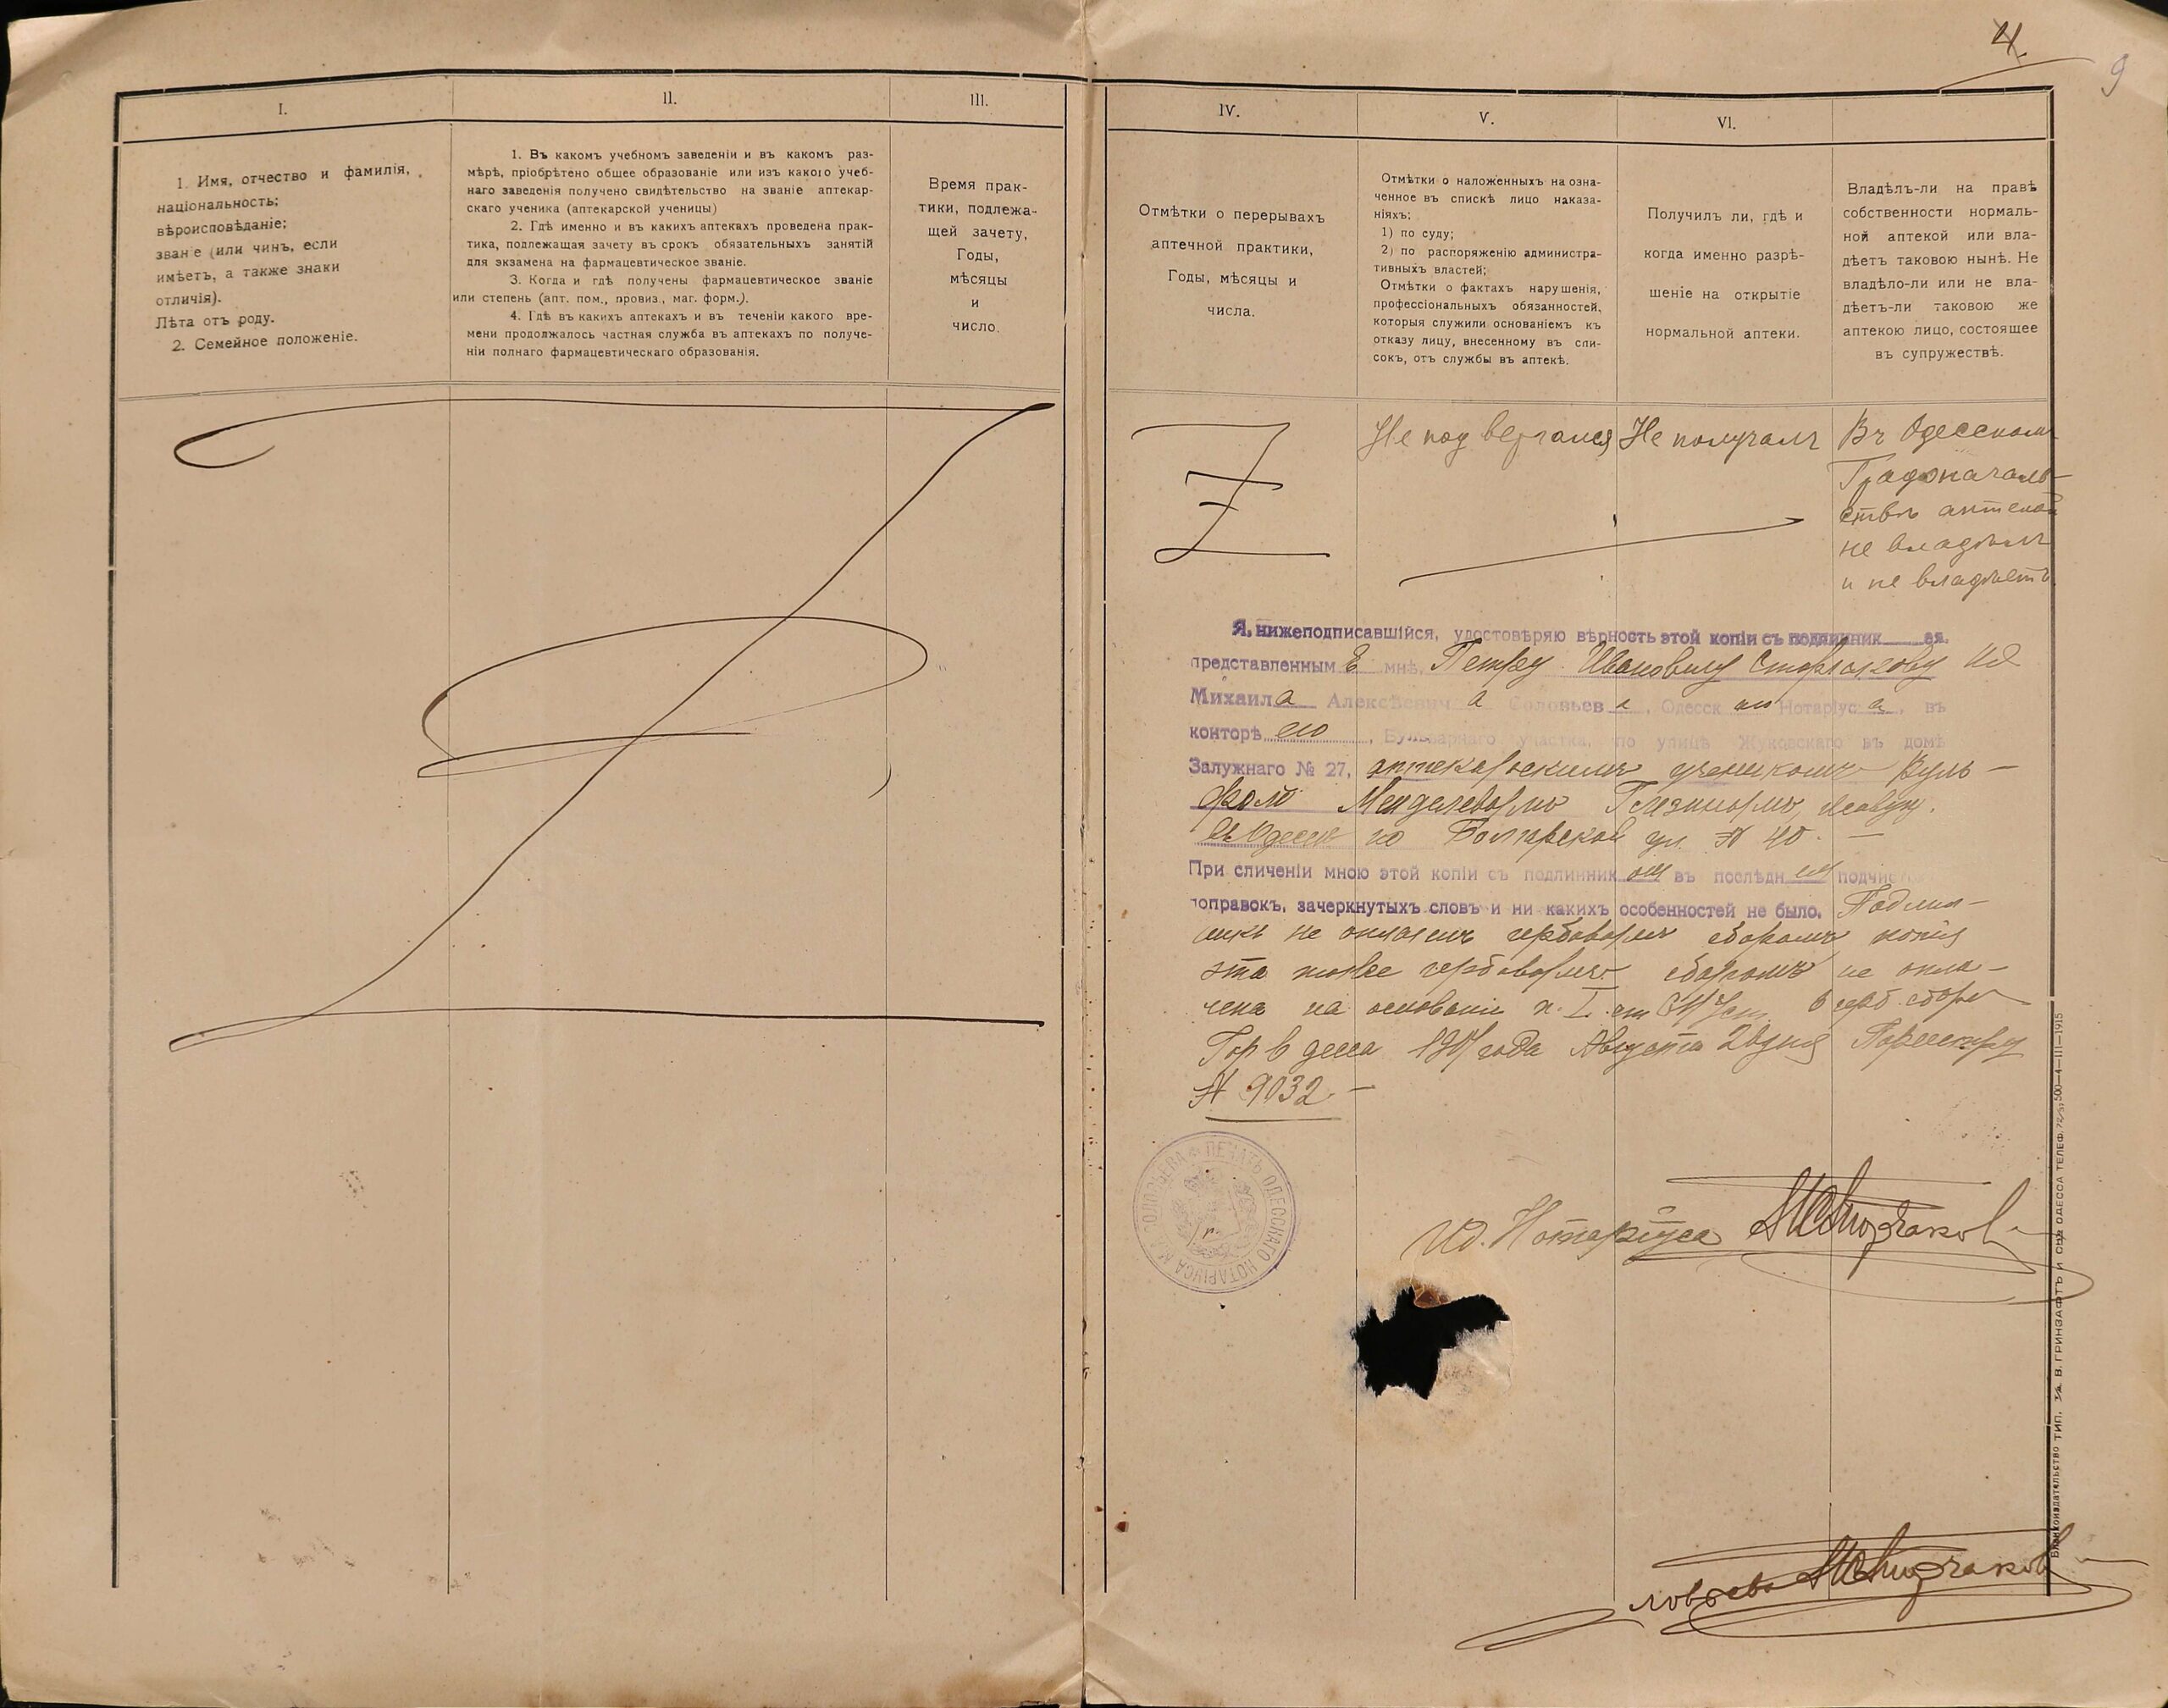 4.
9
I.
1. Имя, отчество и фамилія,
національность;
вѣроисповѣданіе;
званіе (или чинъ, если
имѣетъ, а также знаки
отличія).
Лѣта отъ роду.
2. Семейное положеніе.
II.
1. Въ какомъ учебномъ заведеніи и въ какомъ раз-
мѣрѣ, пріобрѣтено общее образованіе или изъ какого учеб-
наго заведенія получено свидѣтельство на званіе аптекар-
скаго ученика (аптекарской ученицы)
2. Гдѣ именно и въ какихъ аптекахъ проведена прак-
тика, подлежащая зачету въ срокъ обязательныхъ занятій
для экзамена на фармацевтическое званіе.
3. Когда и гдѣ получены фармацевтическое званіе
или степень (апт. пом., провиз., маг. форм.).
4. Гдѣ въ какихъ аптекахъ и въ теченіи какого вре-
мени продолжалось частная служба въ аптекахъ по получе-
ніи полнаго фармацевтическаго образованія.
III.
Время прак-
тики, подлежа-
щей зачету,
Годы,
мѣсяцы
и
число.
IV.
Отмѣтки о перерывахъ
аптечной практики,
Годы, мѣсяцы и
числа.
V.
Отмѣтки о наложенныхъ на озна-
ченное въ спискѣ лицо наказа-
ніяхъ;
1) по суду;
2) по распоряженію администра-
тивныхъ властей;
Отмѣтки о фактахъ нарушенія,
профессіональныхъ обязанностей,
которыя служили основаніемъ къ
отказу лицу, внесенному въ спи-
сокъ, отъ службы въ аптекѣ.
VI.
Получилъ ли, гдѣ и
когда именно разрѣ-
шеніе на открытіе
нормальной аптеки.
Владѣлъ-ли на правѣ
собственности нормаль-
ной аптекой или вла-
дѣетъ таковою нынѣ. Не
владѣло-ли или не вла-
дѣетъ-ли таковою же
аптекою лицо, состоящее
въ супружествѣ.
Не подвергался
Не получалъ
Въ Одесскомъ
Градоначаль-
ствѣ аптекой
не владѣлъ
и не владѣетъ
Я, нижеподписавшійся, удостовѣряю вѣрность этой копіи съ подлинник ея.
представленным мнѣ, Петру Ивановичу ИД
Михаила Алексѣевича Соловьева, Одесск Нотаріуса, въ
конторѣ его, Бульварнаго участка, по улицѣ Жуковскаго въ домѣ
Залужнаго № 27, аптекарскимъ ученикомъ Вуль-
фомъ
въ Одессѣ по Болгарской ул. № 40. —
При сличеніи мною этой копіи съ подлинникомъ въ послѣднемъ подчис
поправокъ, зачеркнутыхъ словъ и ни какихъ особенностей не было. Подлин-
никъ не оплаченъ гербовымъ сборомъ копія
эта также гербовымъ сборомъ не опла-
чена на основаніи п. I ст герб. сборѣ
Гор Одесса года Августа дня По реестру
№ 9032. —
ПЕЧАТЬ ОДЕССКАГО НОТАРІУСА М.А. СОЛОВЬЕВА
И.д. Нотаріуса
ловьева
Бланкоиздательство ТИП. Я. В. ГРИНЗАФТЪ И СЫН ОДЕССА ТЕЛЕФ. 500—4—III—1915